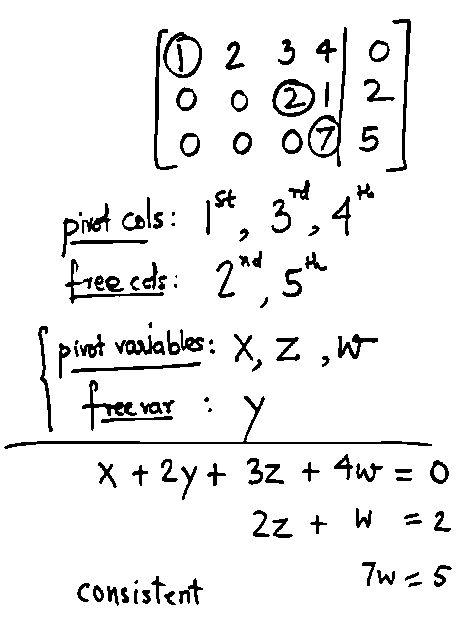 1 2 3 4 | 0
0 0 2 1 | 2
0 0 0 7 | 5
pivot cols: 1st, 3rd, 4th
free cols: 2nd, 5th
pivot variables: x, z, w
free var : y
x + 2y + 3z + 4w = 0
2z + w = 2
7w = 5
consistent